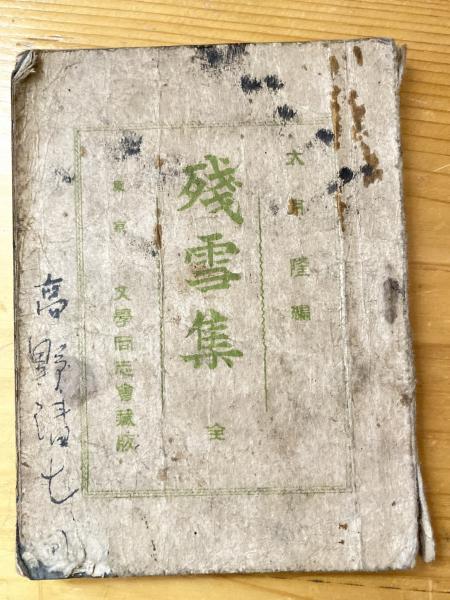 太月隆編
殘雪集 全
東京 文學同志會藏版
高野清七